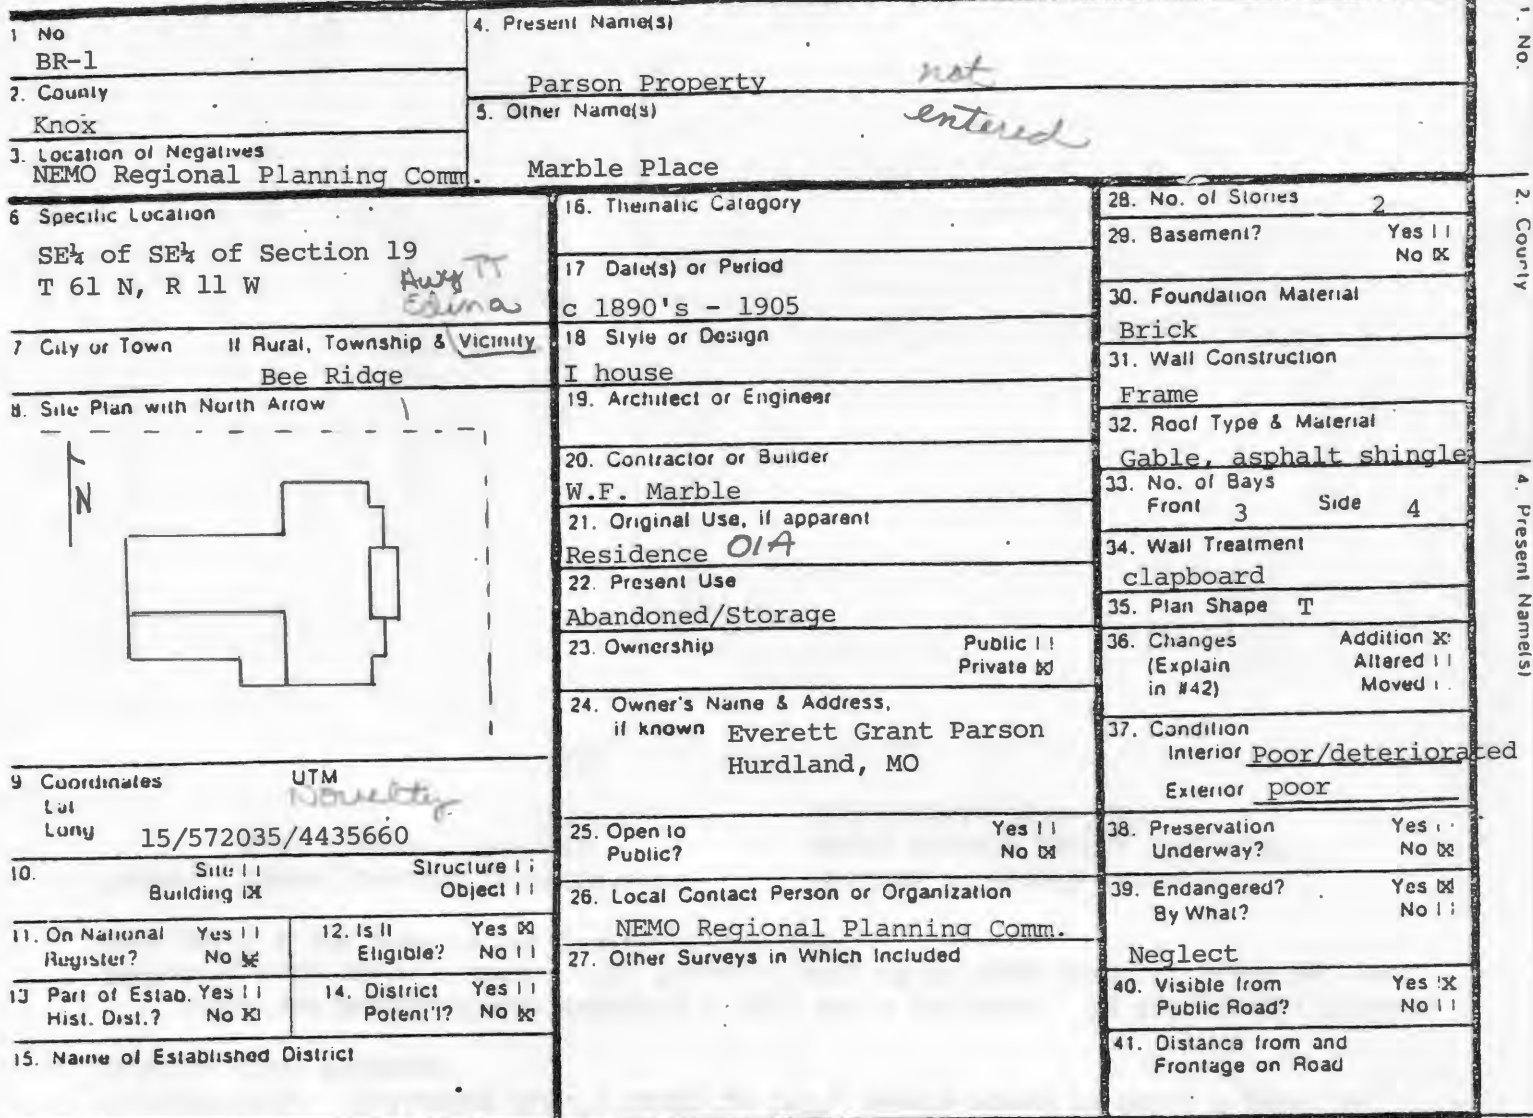 1 No
BR-1
2. County
Knox
3. Location of Negatives
NEMO Regional Planning Comm.
4. Present Name(s)
Parson Property
not
entered
5. Other Name(s)
Marble Place
6 Specific Location
SE¼ of SE¼ of Section 19
T 61 N, R 11 W
Hwy TT
Edina
7 City or Town If Rural, Township & Vicinity
Bee Ridge
8. Site Plan with North Arrow
N
9 Coordinates UTM
Novelty
Lat
Long 15/572035/4435660
10. Site Structure
Building X Object
11. On National Yes
Register? No X
12. Is It Yes X
Eligible? No
13 Part of Estab. Yes
Hist. Dist.? No X
14. District Yes
Potent'l? No X
15. Name of Established District
16. Thematic Category
17 Date(s) or Period
c 1890's - 1905
18 Style or Design
I house
19. Architect or Engineer
20. Contractor or Builder
W.F. Marble
21. Original Use, if apparent
Residence 01A
22. Present Use
Abandoned/Storage
23. Ownership Public
Private X
24. Owner's Name & Address,
if known Everett Grant Parson
Hurdland, MO
25. Open to Yes
Public? No X
26. Local Contact Person or Organization
NEMO Regional Planning Comm.
27. Other Surveys in Which Included
28. No. of Stories 2
29. Basement? Yes
No X
30. Foundation Material
Brick
31. Wall Construction
Frame
32. Roof Type & Material
Gable, asphalt shingle
33. No. of Bays
Front 3 Side 4
34. Wall Treatment
clapboard
35. Plan Shape T
36. Changes Addition X
(Explain Altered
in #42) Moved
37. Condition
Interior Poor/deteriorated
Exterior poor
38. Preservation Yes
Underway? No X
39. Endangered? Yes X
By What? No
Neglect
40. Visible from Yes X
Public Road? No
41. Distance from and
Frontage on Road
1. No.
2. County
4. Present Name(s)